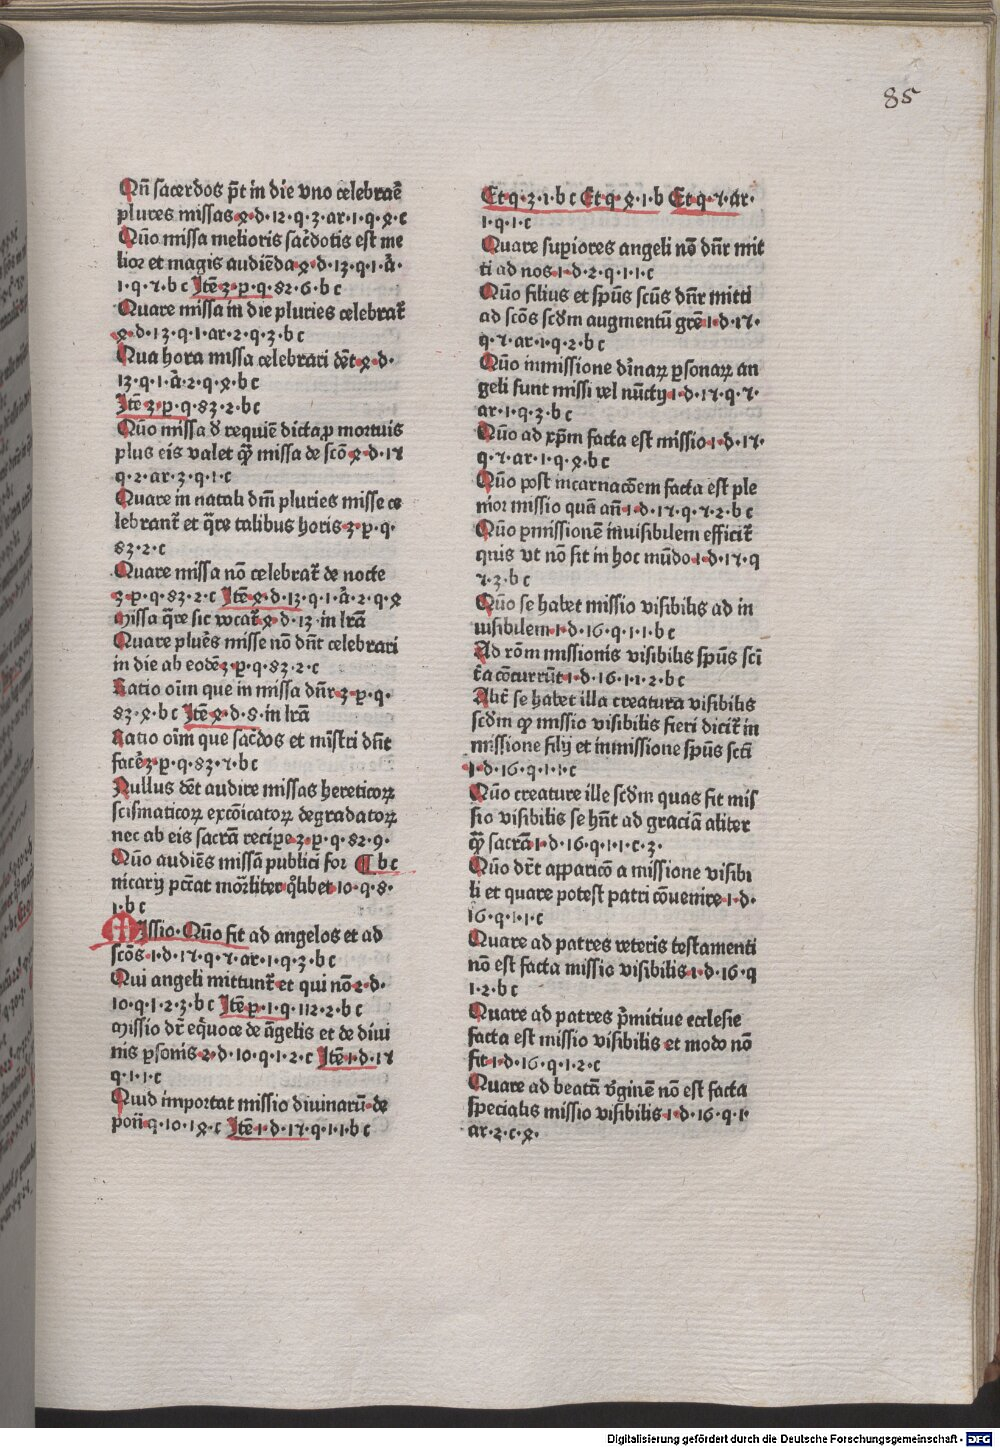 85
Qñ sacerdos p̄t in die vno celebrae᷑
plures missas ꝝ·d·12·q·3·ar·1·q·4·c
Quo᷑ missa melioris sac̄dotis est me
lior et magis audiēda 4·d·13·q·1·a᷑·
1·q·7·b c Itē 3·p·q·82·6·b c
Quare missa in die pluries celebrat᷑
4·d·13·q·1·ar·2·q·3·b c
Qua hora missa celebrari dēt 4·d·
13·q·1·a᷑·2·q·4·b c
Itē 3·p·q·83·2·b c
Quo᷑ missa d᷑ requiē dicta ꝓ mortuis
plus eis valet q̄ꝫ missa de scō 4·d·17
q·2·ar·3·q·1·c
Quare in natali dn̄i pluries misse ce
lebrant᷑ et q̄re talibus horis 3·p·q·
83·2·c
Quare missa nō celebrat᷑ de nocte
3·p·q·83·2·c Itē 4·d·13·q·1·a᷑·2·q·4
Missa q̄re sic vocat᷑ 4·d·13·in lr̄a
Quare plue᷑s misse nō dn̄t celebrari
in die ab eodē 3·p·q·83·2·c
Ratio oīm que in missa dn̄r 3·p·q·
83·4·b c Itē 4·d·8·in lr̄a
Ratio oīm que sac̄dos et mīstri dn̄t
facē 3·p·q·83·7·b c
Nullus dēt audire missas hereticoꝝ
scismaticoꝝ excōicatoꝝ degradatoꝝ
nec ab eis sacrā recipe 3·p·q·82·9·
Quo᷑ audiēs missā publici for ¶ b c
nicarij pct̄at mor̄liter q̄libet 10·q·8·
1·b c
MIssio·Quo᷑ fit ad angelos et ad
scōs·1·d·17·q·7·ar·1·q·3·b c
Qui angeli mittunt᷑ et qui nō 2·d·
10·q·1·2·3·b c Itē p·1·q·112·2·b c
Missio dr̄ eq̄uoce de āgelis et de diui
nis p̱sonis 2·d·10·q·1·2·c Itē 1·d·17
q·1·1·c
Quid importat missio diuinarū de
poñ q·10·14·c Itē·1·d·17·q·1·1·b c
Et q·3·1·b c Et q·4·1·b Et q·7·ar·
1·q·1·c
Quare sup̱iores angeli nō dn̄r mit
ti ad nos 1·d·2·q·1·1·c
Quo᷑ filius et sp̄us scūs dn̄r mitti
ad scōs scd̄m augmentū grē 1·d·17·
q·7·ar·1·q·2·b c
Quo᷑ in missione dīnaꝝ p̱sonaꝝ an
geli sunt missi vel nūctij 1·d·17·q·7·
ar·1·q·3·b c
Quo᷑ ad xp̄m facta est missio 1·d·17·
q·7·ar·1·q·4·b c
Quo᷑ post incarnacōem facta est ple
nior missio quā an̄ 1·d·17·q·7·2·b c
Quo᷑ p̱ missionē inuisibilem efficit᷑
quis vt nō sit in hoc mūdo 1·d·17·q
7·3·b c
Quo᷑ se habet missio visibilis ad in
uisibilem 1·d·16·q·1·1·b c
Ad rōm missionis visibilis sp̄us scī
t̄a cōcurrūt 1·d·16·1·1·2·b c
Alit̄ se habet illa creatura visibilis
scd̄m quā missio visibilis fieri dicit᷑ in
missione filij et in missione sp̄us sctī
1·d·16·q·1·1·c
Quo᷑ creature ille scd̄m quas fit mis
sio visibilis se hn̄t ad graciā aliter
q̄ꝫ sacrā 1·d·16·q·1·1·c·3·
Quo᷑ dr̄t apparicō a missione visibi
li et quare potest patri cōuenire 1·d·
16·q·1·1·c
Quare ad patres veteris testamenti
nō est facta missio visibilis 1·d·16·q
1·2·b c
Quare ad patres p̄mitiue ecclesie
facta est missio visibilis et modo nō
fit 1·d·16·q·1·2·c
Quare ad beatā v̄ginē nō est facta
specialis missio visibilis 1·d·16·q·1·
ar·2·c·4·
Digitalisierung gefördert durch die Deutsche Forschungsgemeinschaft - DFG